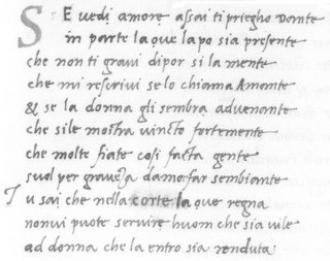 SE vedi amore assai ti priegho Donte
in parte la que lapo sia presente
che non ti gravi dipor si la mente
che mi rescrivi se lo chiama Amante
& se la donna gli sembra advenante
che sile mostra vincto fortemente
che molte fiate cosi facta gente
suol per graveza damor far sembiante
Tu sai che nella corte la que regna
nonvi puote servire huom che sia vile
ad donna che la entro sia renduta